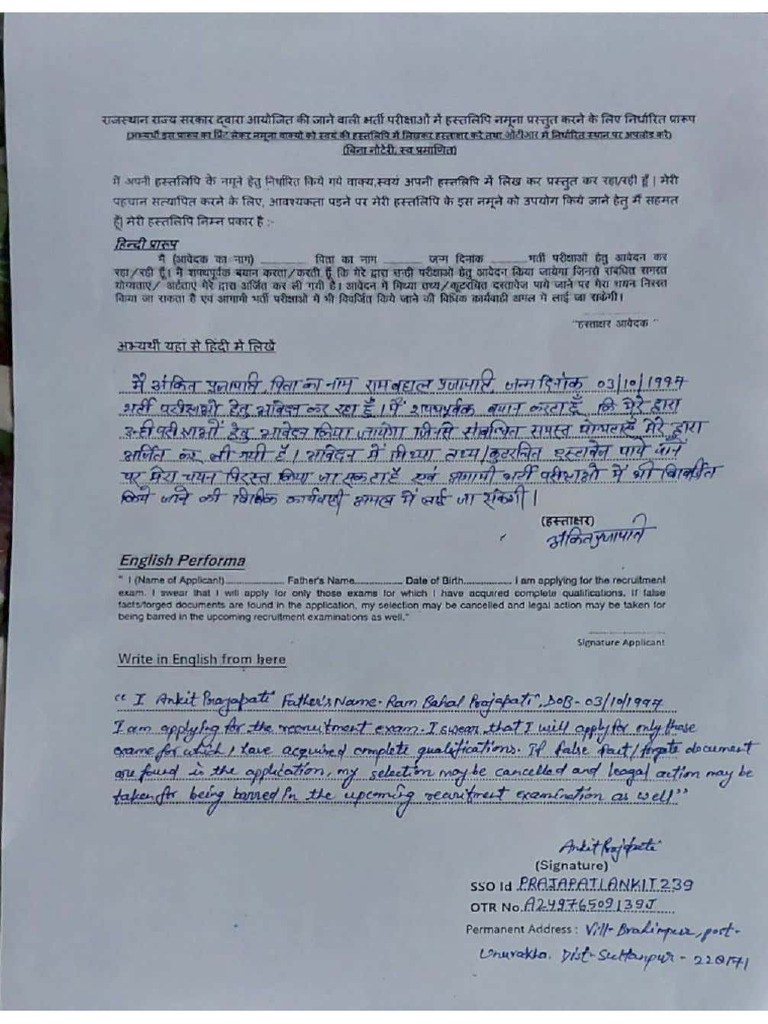 राजस्थान राज्य सरकार द्वारा आयोजित की जाने वाली भर्ती परीक्षाओं में हस्तलिपि नमूना प्रस्तुत करने के लिए निर्धारित प्रारूप
(अभ्यर्थी इस प्रारूप का प्रिंट लेकर नमूना वाक्यों को स्वयं की हस्तलिपि में लिखकर हस्ताक्षर करे तथा ओटीआर में निर्धारित स्थान पर अपलोड करे)
(बिना नोटेरी, स्व प्रमाणित)
मैं अपनी हस्तलिपि के नमूने हेतु निर्धारित किये गये वाक्य,स्वयं अपनी हस्तलिपि में लिख कर प्रस्तुत कर रहा/रही हूँ। मेरी
पहचान सत्यापित करने के लिए, आवश्यकता पड़ने पर मेरी हस्तलिपि के इस नमूने को उपयोग किये जाने हेतु मैं सहमत
हूँ। मेरी हस्तलिपि निम्न प्रकार है :-
हिन्दी प्रारूप
मैं (आवेदक का नाम) ............ पिता का नाम ............ जन्म दिनांक ............ भर्ती परीक्षाओं हेतु आवेदन कर
रहा/रही हूँ। मैं शपथपूर्वक बयान करता/करती हूँ कि मेरे द्वारा उन्हीं परीक्षाओं हेतु आवेदन किया जायेगा जिनसे संबंधित समस्त
योग्यताएं/ अर्हताएं मेरे द्वारा अर्जित कर ली गयी है। आवेदन में मिथ्या तथ्य/कूटरचित दस्तावेज पाये जाने पर मेरा चयन निरस्त
किया जा सकता है एवं आगामी भर्ती परीक्षाओं में भी विवर्जित किये जाने की विधिक कार्यवाही अमल में लाई जा सकेगी।
"हस्ताक्षर आवेदक "
अभ्यर्थी यहां से हिंदी में लिखें
मैं अंकित प्रजापति, पिता का नाम रामबहाल प्रजापति जन्म दिनांक 03/10/1997
भर्ती परीक्षाओं हेतु आवेदन कर रहा हूँ। मैं शपथपूर्वक बयान करता हूँ कि मेरे द्वारा
उन्हीं परीक्षाओं हेतु आवेदन किया जायेगा जिनसे संबंधित समस्त योग्यताएँ मेरे द्वारा
अर्जित कर ली गयी है। आवेदन में मिथ्या तथ्य/कूटरचित दस्तावेज पाये जाने
पर मेरा चयन निरस्त किया जा सकता है एवं आगामी भर्ती परीक्षाओं में भी विवर्जित
किये जाने की विधिक कार्यवाही अमल में लाई जा सकेगी।
(हस्ताक्षर)
अंकित प्रजापति
English Performa
" I (Name of Applicant).................. Father's Name............... Date of Birth............... I am applying for the recruitment
exam. I swear that I will apply for only those exams for which I have acquired complete qualifications. If false
facts/forged documents are found in the application, my selection may be cancelled and legal action may be taken for
being barred in the upcoming recruitment examinations as well."
Signature Applicant
Write in English from here
"I Ankit Prajapati Father's Name- Ram Bahal Prajapati", DOB- 03/10/1997
I am applying for the recruitment exam. I swear that I will apply for only those
exame for which I have acquired complete qualifications. If false fact/forgate document
are found in the application, my selection may be cancelled and leagal action may be
taken for being barred in the upcoming recruitment examination as well"
Ankit Prajapati
(Signature)
SSO Id PRAJAPATIANKIT239
OTR No. A24976509139J
Permanent Address : Vill- Brahimpur, post-
Unurakha. Dist- Sultanpur - 228171